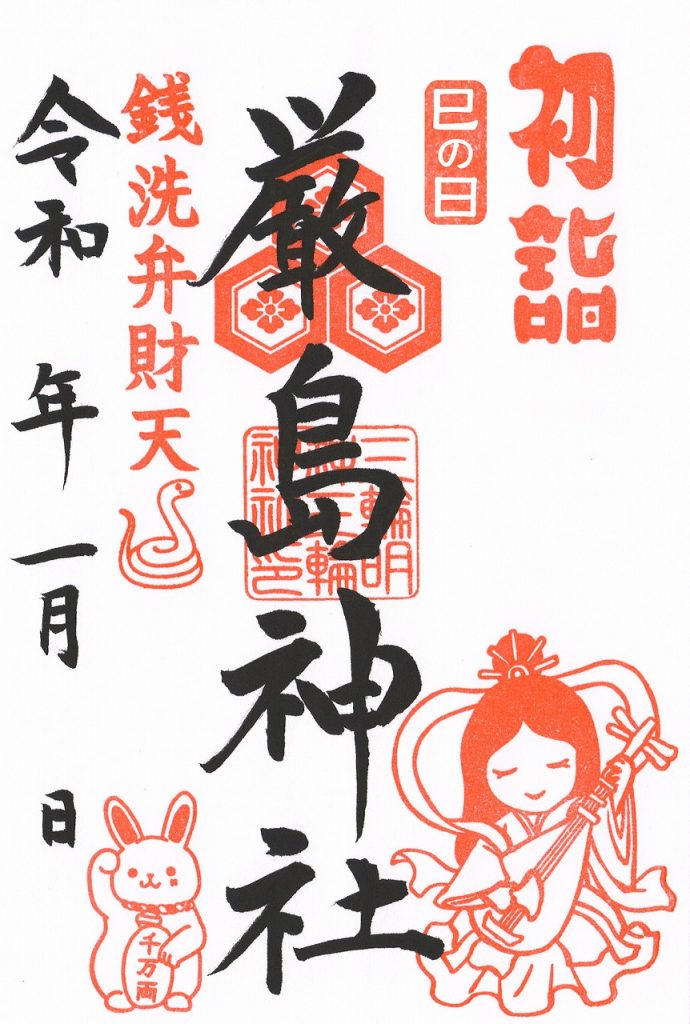 初詣
巳の日
厳島神社
三輪明
神三輪
神社印
銭洗弁財天
令和 年 一月 日
千万両